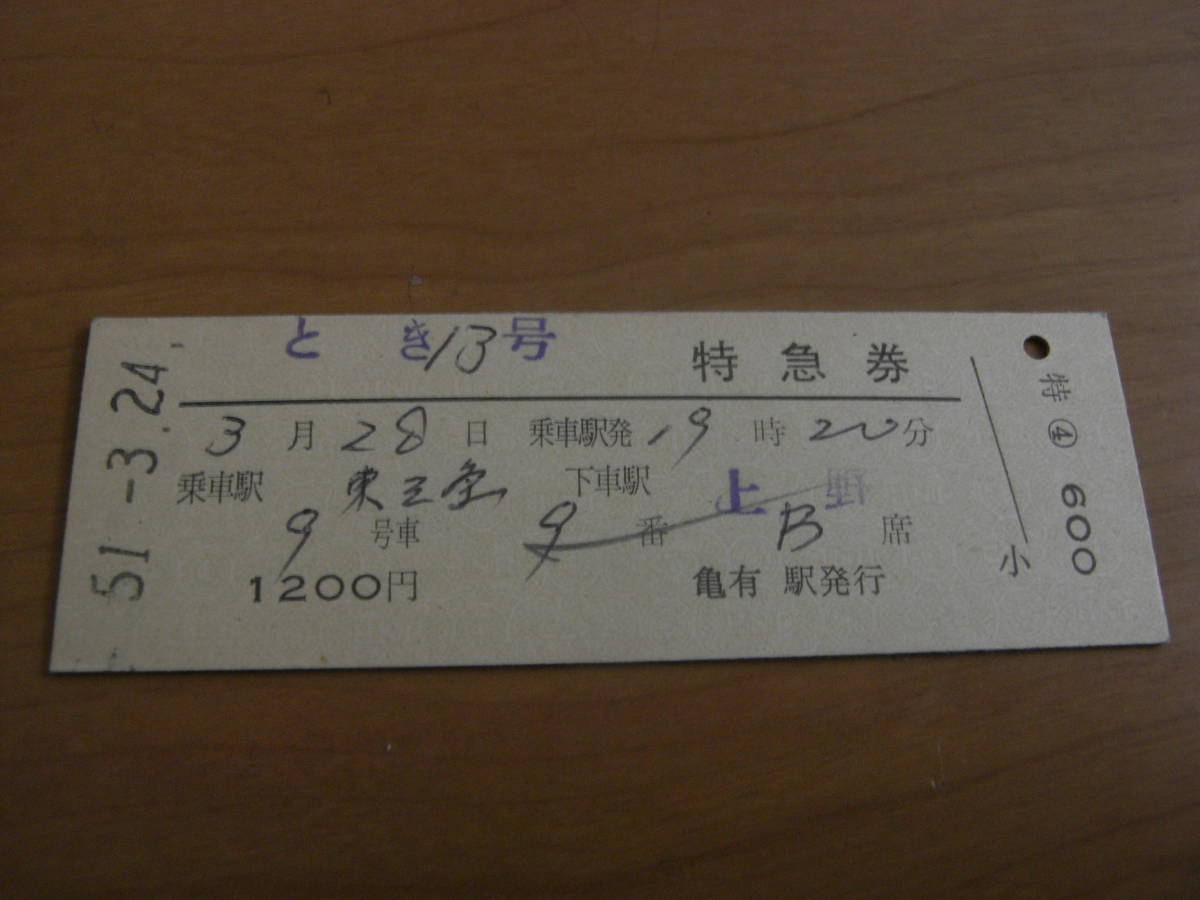 とき13号 特急券
3月28日 乗車駅発19時20分
乗車駅 東三条 下車駅 上野
9号車 9番B席
1200円 亀有駅発行
51-3.24
特④600
小